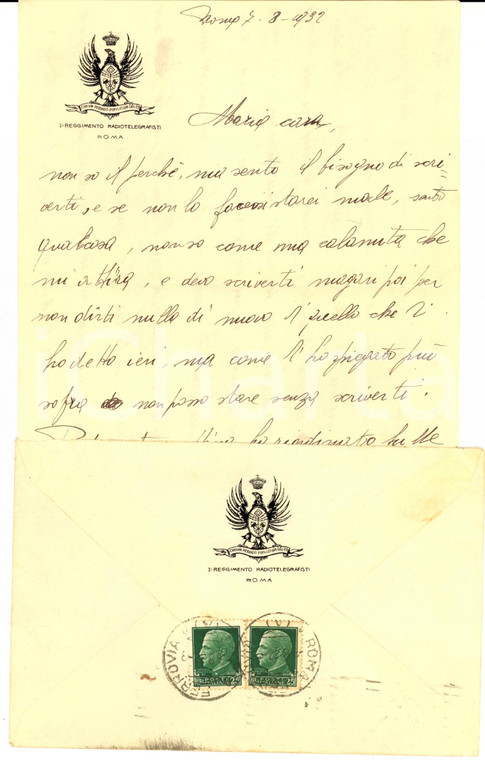 Roma 7-8-1932
I° REGGIMENTO RADIOTELEGRAFISTI
ROMA
Maria cara,
non so il perchè, ma sento il bisogno di scri-
verti, e se non lo facessi starei male, sento
qualcosa, non so come una calamita che
mi attira, e devo scriverti magari poi per
non dirti nulla di nuovo di quello che t'
ho detto ieri, ma come t'ho spiegato più
sopra non posso stare senza scriverti.
ho riordinato tutte
I° REGGIMENTO RADIOTELEGRAFISTI
ROMA
FERROVIA
ROMA